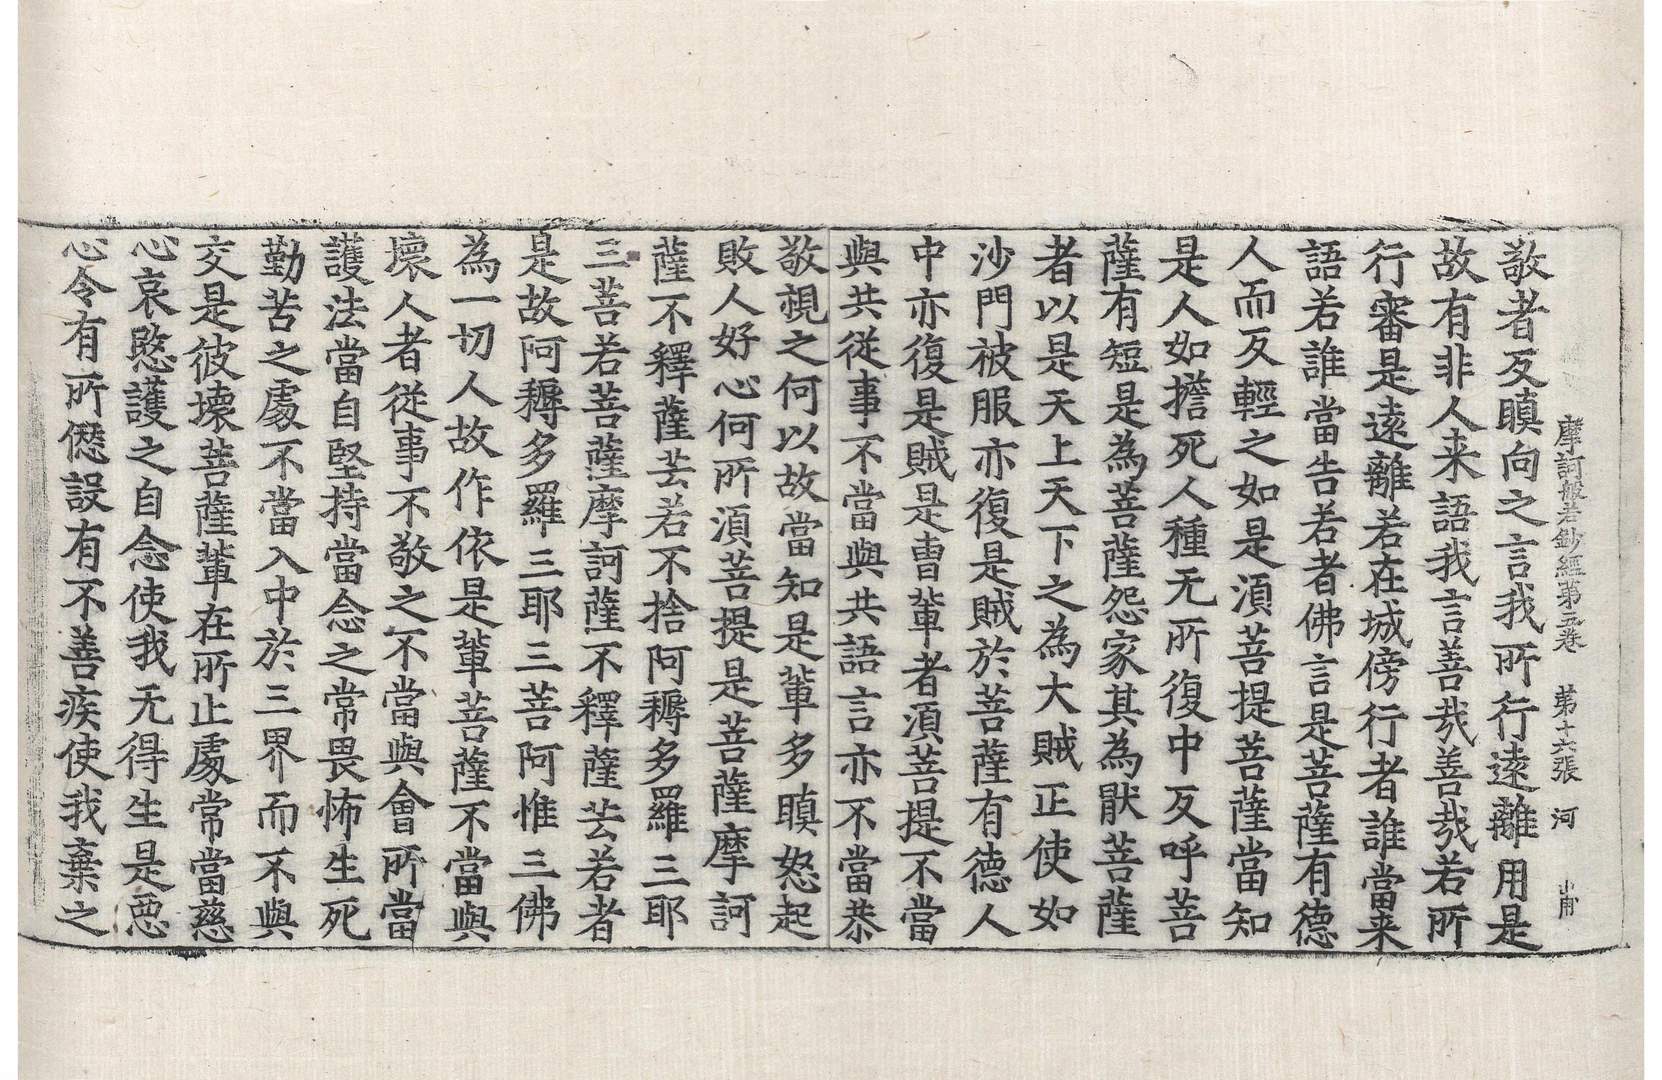 摩訶般若鈔經第五卷　第十六張　河
敬者反瞋向之言我所行遠離用是
故有非人来語我言善哉善哉若所
行審是遠離若在城傍行者誰當来
語若誰當告若者佛言是菩薩有德
人而反輕之如是湏菩提菩薩當知
是人如擔死人種无所復中反呼菩
薩有短是為菩薩怨家其為猒菩薩
者以是天上天下之為大賊正使如
沙門被服亦復是賊於菩薩有德人
中亦復是賊是曹軰者湏菩提不當
與共從事不當與共語言亦不當恭
敬視之何以故當知是軰多瞋怒起
敗人好心何所湏菩提是菩薩摩訶
薩不釋薩芸若不捨阿耨多羅三耶
三菩若菩薩摩訶薩不釋薩芸若者
是故阿耨多羅三耶三菩阿惟三佛
為一切人故作依是軰菩薩不當與
壞人者從事不敬之不當與會所當
護法當自堅持當念之常畏怖生死
勤苦之處不當入中於三界而不與
交是彼壞菩薩軰在所止處常當慈
心哀愍護之自念使我无得生是惡
心令有所僁設有不善疾使我棄之